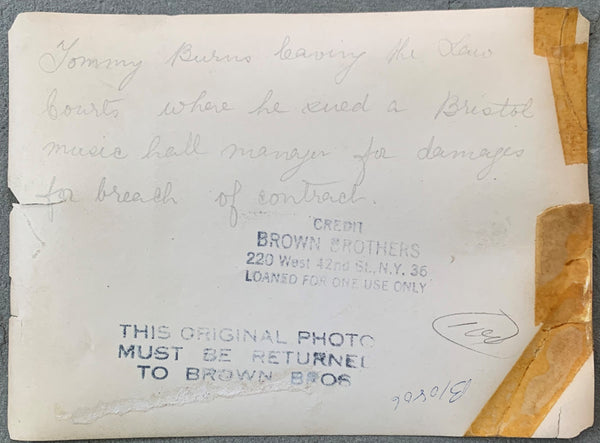 Tommy Burns leaving the Law
Courts where he sued a Bristol
music hall manager for damages
for breach of contract.
CREDIT
BROWN BROTHERS
220 West 42nd St., N.Y. 36
LOANED FOR ONE USE ONLY
THIS ORIGINAL PHOTO
MUST BE RETURNED
TO BROWN BROS